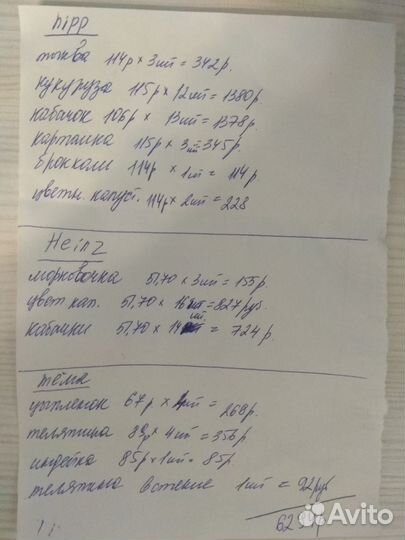 hipp
тыква 114р × 3шт = 342р.
кукуруза 115р × 12шт = 1380р
кабачок 106р × 13шт = 1378р.
картошка 115р × 3шт = 345р.
брокколи 114р × 1шт = 114р.
цветн. капуст. 114р × 2шт = 228
Heinz
морковочка 51,70 × 3шт = 155р.
цвет. кап. 51,70 × 16шт = 827руб.
кабачки 51,70 × 14шт = 724р.
тёма
цыпленок 67р × 4шт = 268р.
телятина 89р × 4шт = 356р
индейка 85р × 1шт = 85р.
телятина в стекле 1шт = 92руб
Avito